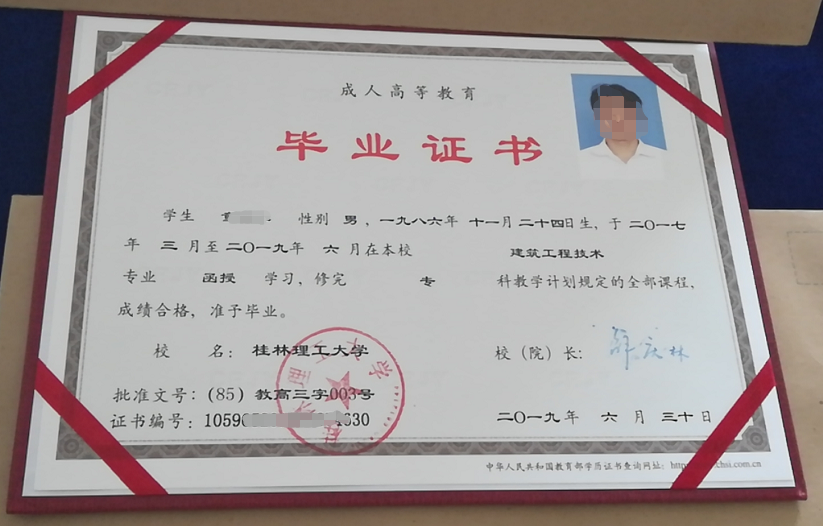 成人高等教育
毕业证书
学生 性别 男，一九八六年 十一月 二十四日生，于 二〇一七
年 三 月至 二〇一九年 六 月在本校 建筑工程技术
专业 函授 学习，修完 专 科教学计划规定的全部课程，
成绩合格，准予毕业。
校 名：桂林理工大学 校（院）长：
批准文号：(85) 教高三字003号
证书编号：10596 630 二〇一九年 六 月 三十日
中华人民共和国教育部学历证书查询网址：http chsi.com.cn